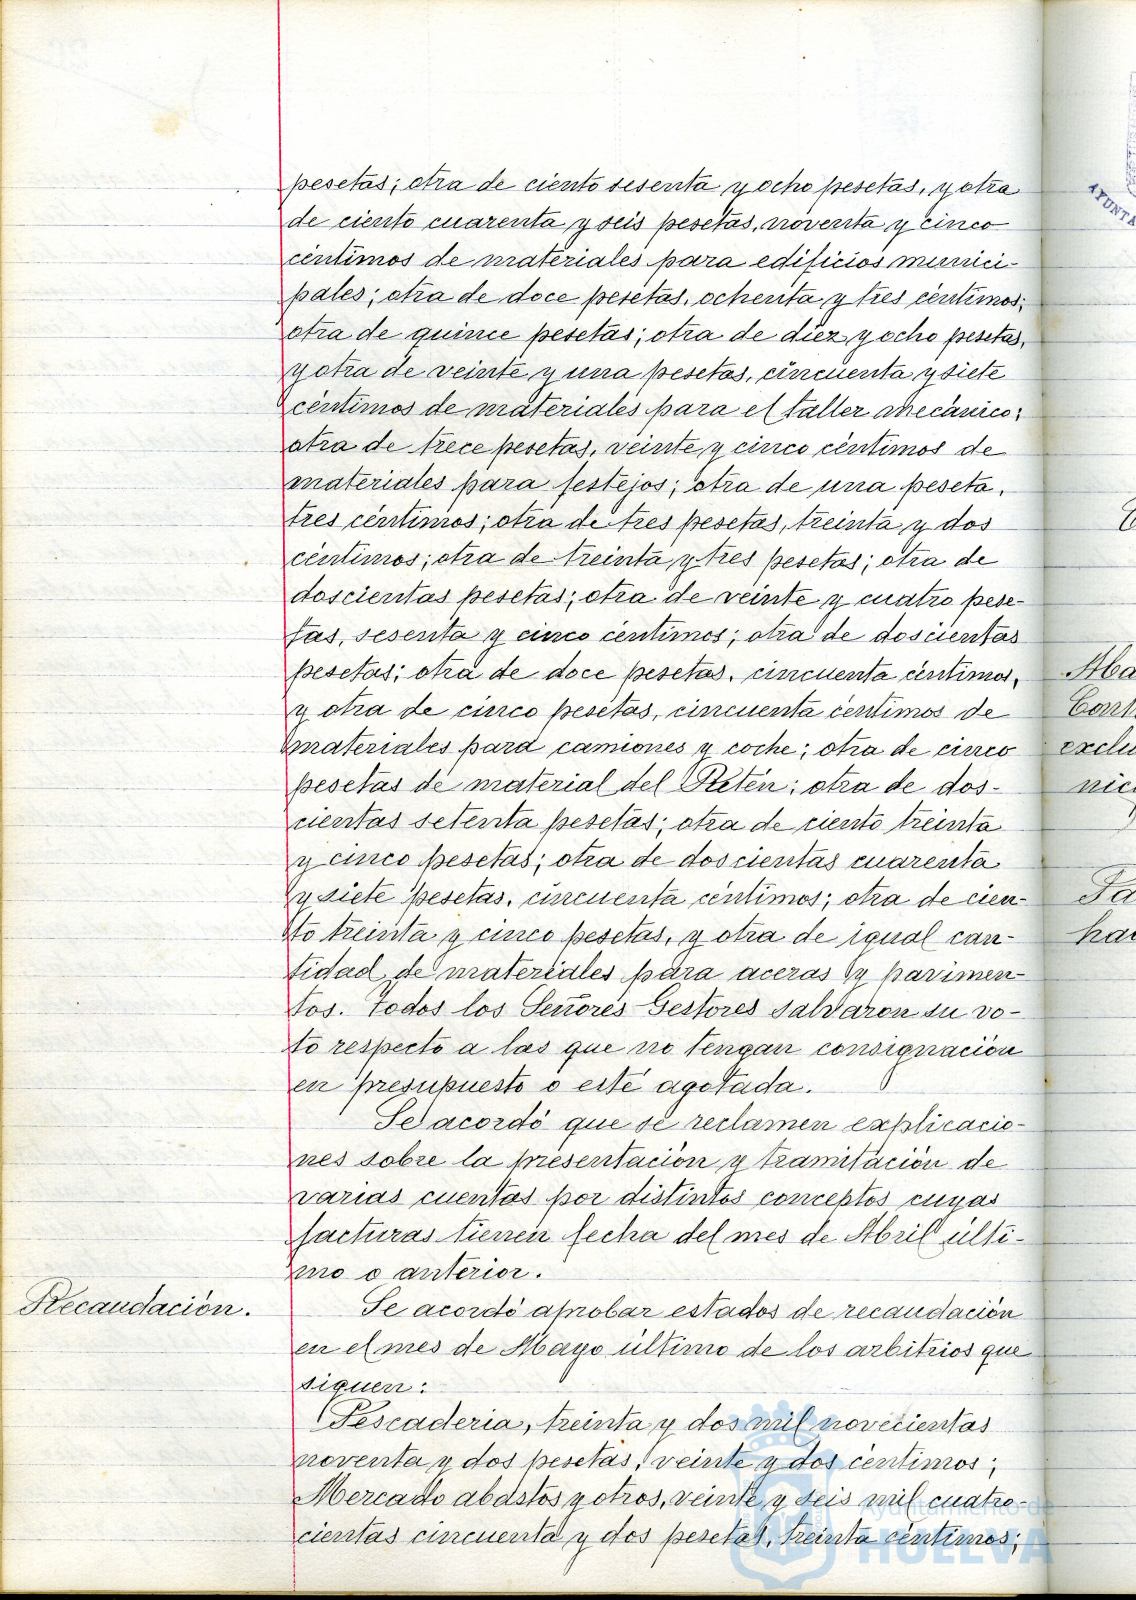 pesetas; otra de ciento sesenta y ocho pesetas, y otra
de ciento cuarenta y seis pesetas, noventa y cinco
céntimos de materiales para edificios munici-
pales; otra de doce pesetas, ochenta y tres céntimos;
otra de quince pesetas; otra de diez y ocho pesetas,
y otra de veinte y una pesetas, cincuenta y siete
céntimos de materiales para el taller mecánico;
otra de trece pesetas, veinte y cinco céntimos de
materiales para festejos; otra de una peseta,
tres céntimos; otra de tres pesetas, treinta y dos
céntimos; otra de treinta y tres pesetas; otra de
doscientas pesetas; otra de veinte y cuatro pese-
tas, sesenta y cinco céntimos; otra de doscientas
pesetas; otra de doce pesetas, cincuenta céntimos,
y otra de cinco pesetas, cincuenta céntimos de
materiales para camiones y coche; otra de cinco
pesetas de material del Retén; otra de dos-
cientas setenta pesetas; otra de ciento treinta
y cinco pesetas; otra de doscientas cuarenta
y siete pesetas, cincuenta céntimos; otra de cien-
to treinta y cinco pesetas, y otra de igual can-
tidad de materiales para aceras y pavimen-
tos. Todos los Señores Gestores salvaron su vo-
to respecto a las que no tengan consignación
en presupuesto o esté agotada.
Se acordó que se reclamen explicacio-
nes sobre la presentación y tramitación de
varias cuentas por distintos conceptos cuyas
facturas tienen fecha del mes de Abril últi-
mo o anterior.
Recaudación.
Se acordó aprobar estados de recaudación
en el mes de Mayo último de los arbitrios que
siguen:
Pescaderia, treinta y dos mil novecientas
noventa y dos pesetas, veinte y dos céntimos;
Mercado abastos y otros, veinte y seis mil cuatro-
cientas cincuenta y dos pesetas, treinta céntimos;
Ayuntamiento de
HUELVA
AYUNTA
Aba
Cont
exclu
nic
Pa
han